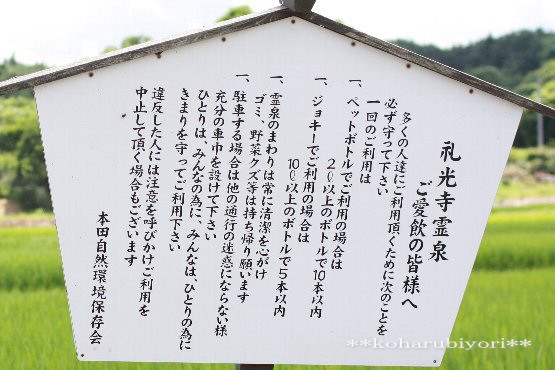 礼光寺霊泉
ご愛飲の皆様へ
多くの人達にご利用頂くために次のことを
必ず守って下さい
一回のご利用は
一、ペットボトルでご利用の場合は
2ℓ以上のボトルで10本以内
一、ジョキーでご利用の場合は
10ℓ以上のボトルで5本以内
一、霊泉のまわりは常に清潔を心がけ
ゴミ、野菜クズ等は持ち帰り願います
一、駐車する場合は他の通行の迷惑にならない様
充分の車巾を設けて下さい
ひとりは、みんなの為に、みんなは、ひとりの為に
きまりを守ってご利用下さい
違反した人には注意を呼びかけご利用を
中止して頂く場合もございます
本田自然環境保存会
**koharubiyori**